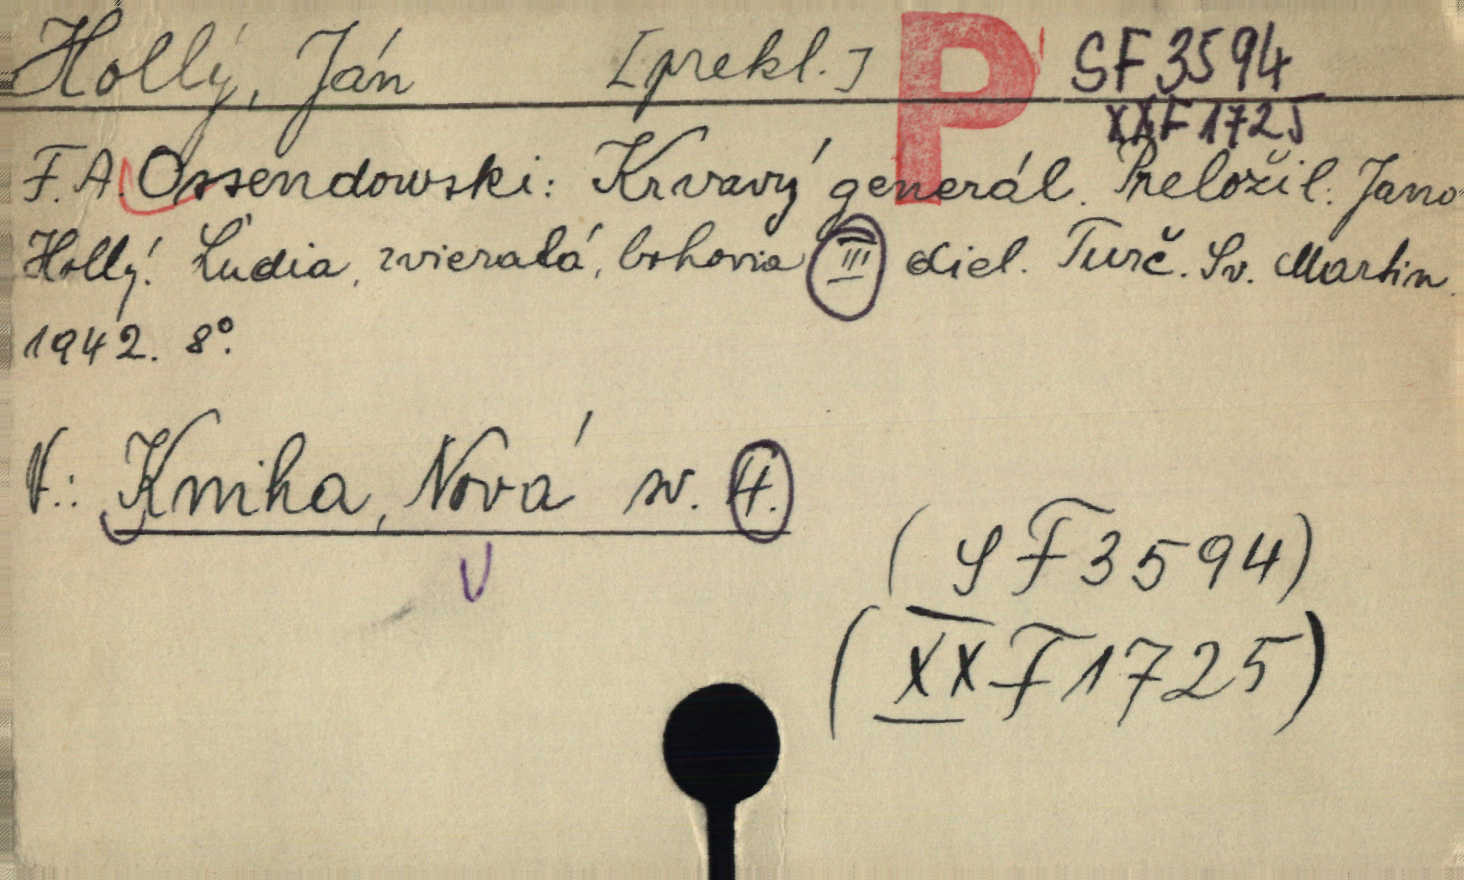 Hollý, Ján [prekl.] P SF 3594
XXF 1725
F. A. Ossendowski: Krvavý generál. Preložil: Jano
Hollý. Ľudia, zvieratá, bohovia III diel. Turč. Sv. Martin.
1942. 8°.
V.: Kniha, Nová sv. 4.
(SF 3594)
(XXF 1725)